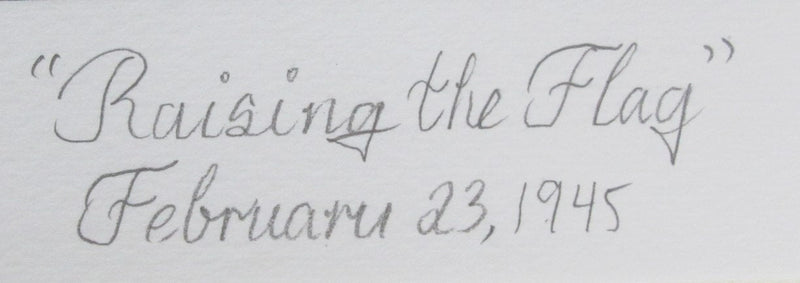 "Raising the Flag"
February 23, 1945